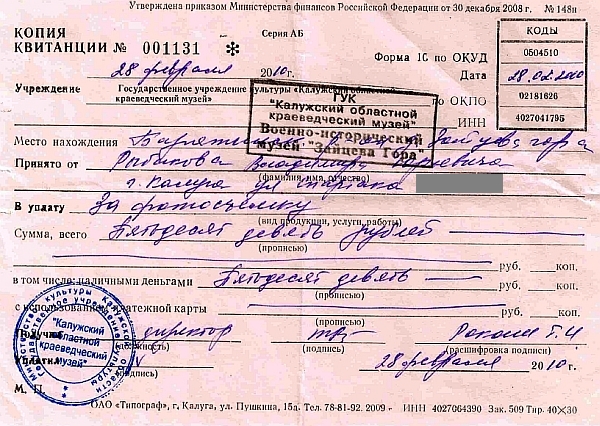 Утверждена приказом Министерства финансов Российской Федерации от 30 декабря 2008 г. № 148н
КОПИЯ
КВИТАНЦИИ № 001131 *
Серия АБ
КОДЫ
Форма 10 по ОКУД 0504510
28 февраля 2010г.
Дата 28.02.2010
Учреждение Государственное учреждение культуры "Калужский областной краеведческий музей"
по ОКПО 02181626
ИНН 4027041795
ГУК
"Калужский областной
краеведческий музей"
Военно-исторический
музей "Зайцева Гора"
Место нахождения Зайцева гора
Принято от Рыбакова Владимира
(фамилия, имя, отчество)
г. Калуга ул Спартака
В уплату За фотосъемку
(вид продукции, услуги, работы)
Сумма, всего Пятьдесят девять рублей
(прописью)
руб. коп.
в том числе: наличными деньгами Пятьдесят девять
(прописью)
руб. коп.
с использованием платежной карты
(прописью)
руб. коп.
Получил директор
(должность) (подпись) (расшифровка подписи)
Уплатил 28 февраля 2010г.
(подпись)
М. П.
"Калужский
областной
краеведческий
музей"
ОАО "Типограф", г. Калуга, ул. Пушкина, 15д. Тел. 78-81-92. 2009 г. ИНН 4027064390 Зак. 509 Тир. 40×30